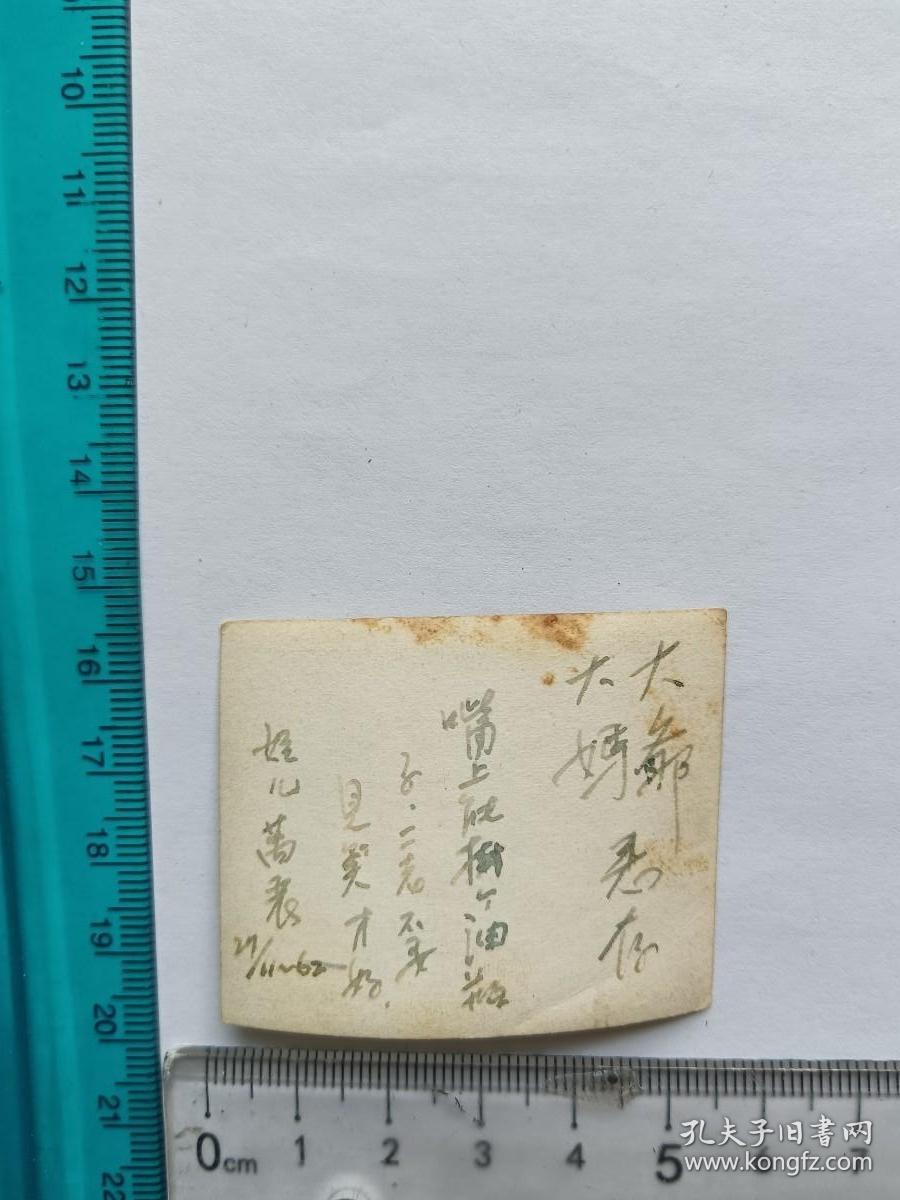 大爺
大媽
惠存
嘴上能掛个油瓶
子.二老不要
見笑才好.
姪儿萬
27/11-62
10
11
12
13
14
15
16
17
18
19
20
21
22
0cm 1 2 3 4 5 6 7
孔夫子旧書网
www.kongfz.com